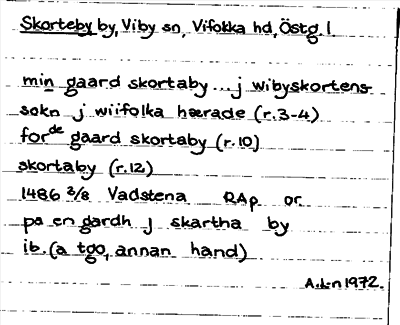 Skorteby by, Viby sn, Vifolka hd, Östg. l
min gaard skortaby...j wibyskortens
sokn j wiifolka hærade (r.3-4)
forde gaard skortaby (r.10)
skortaby (r.12)
1486 3/8 Vadstena RAp or.
pa en gardh j skartha by
ib. (a tgo, annan hand)
A.L-n 1972.